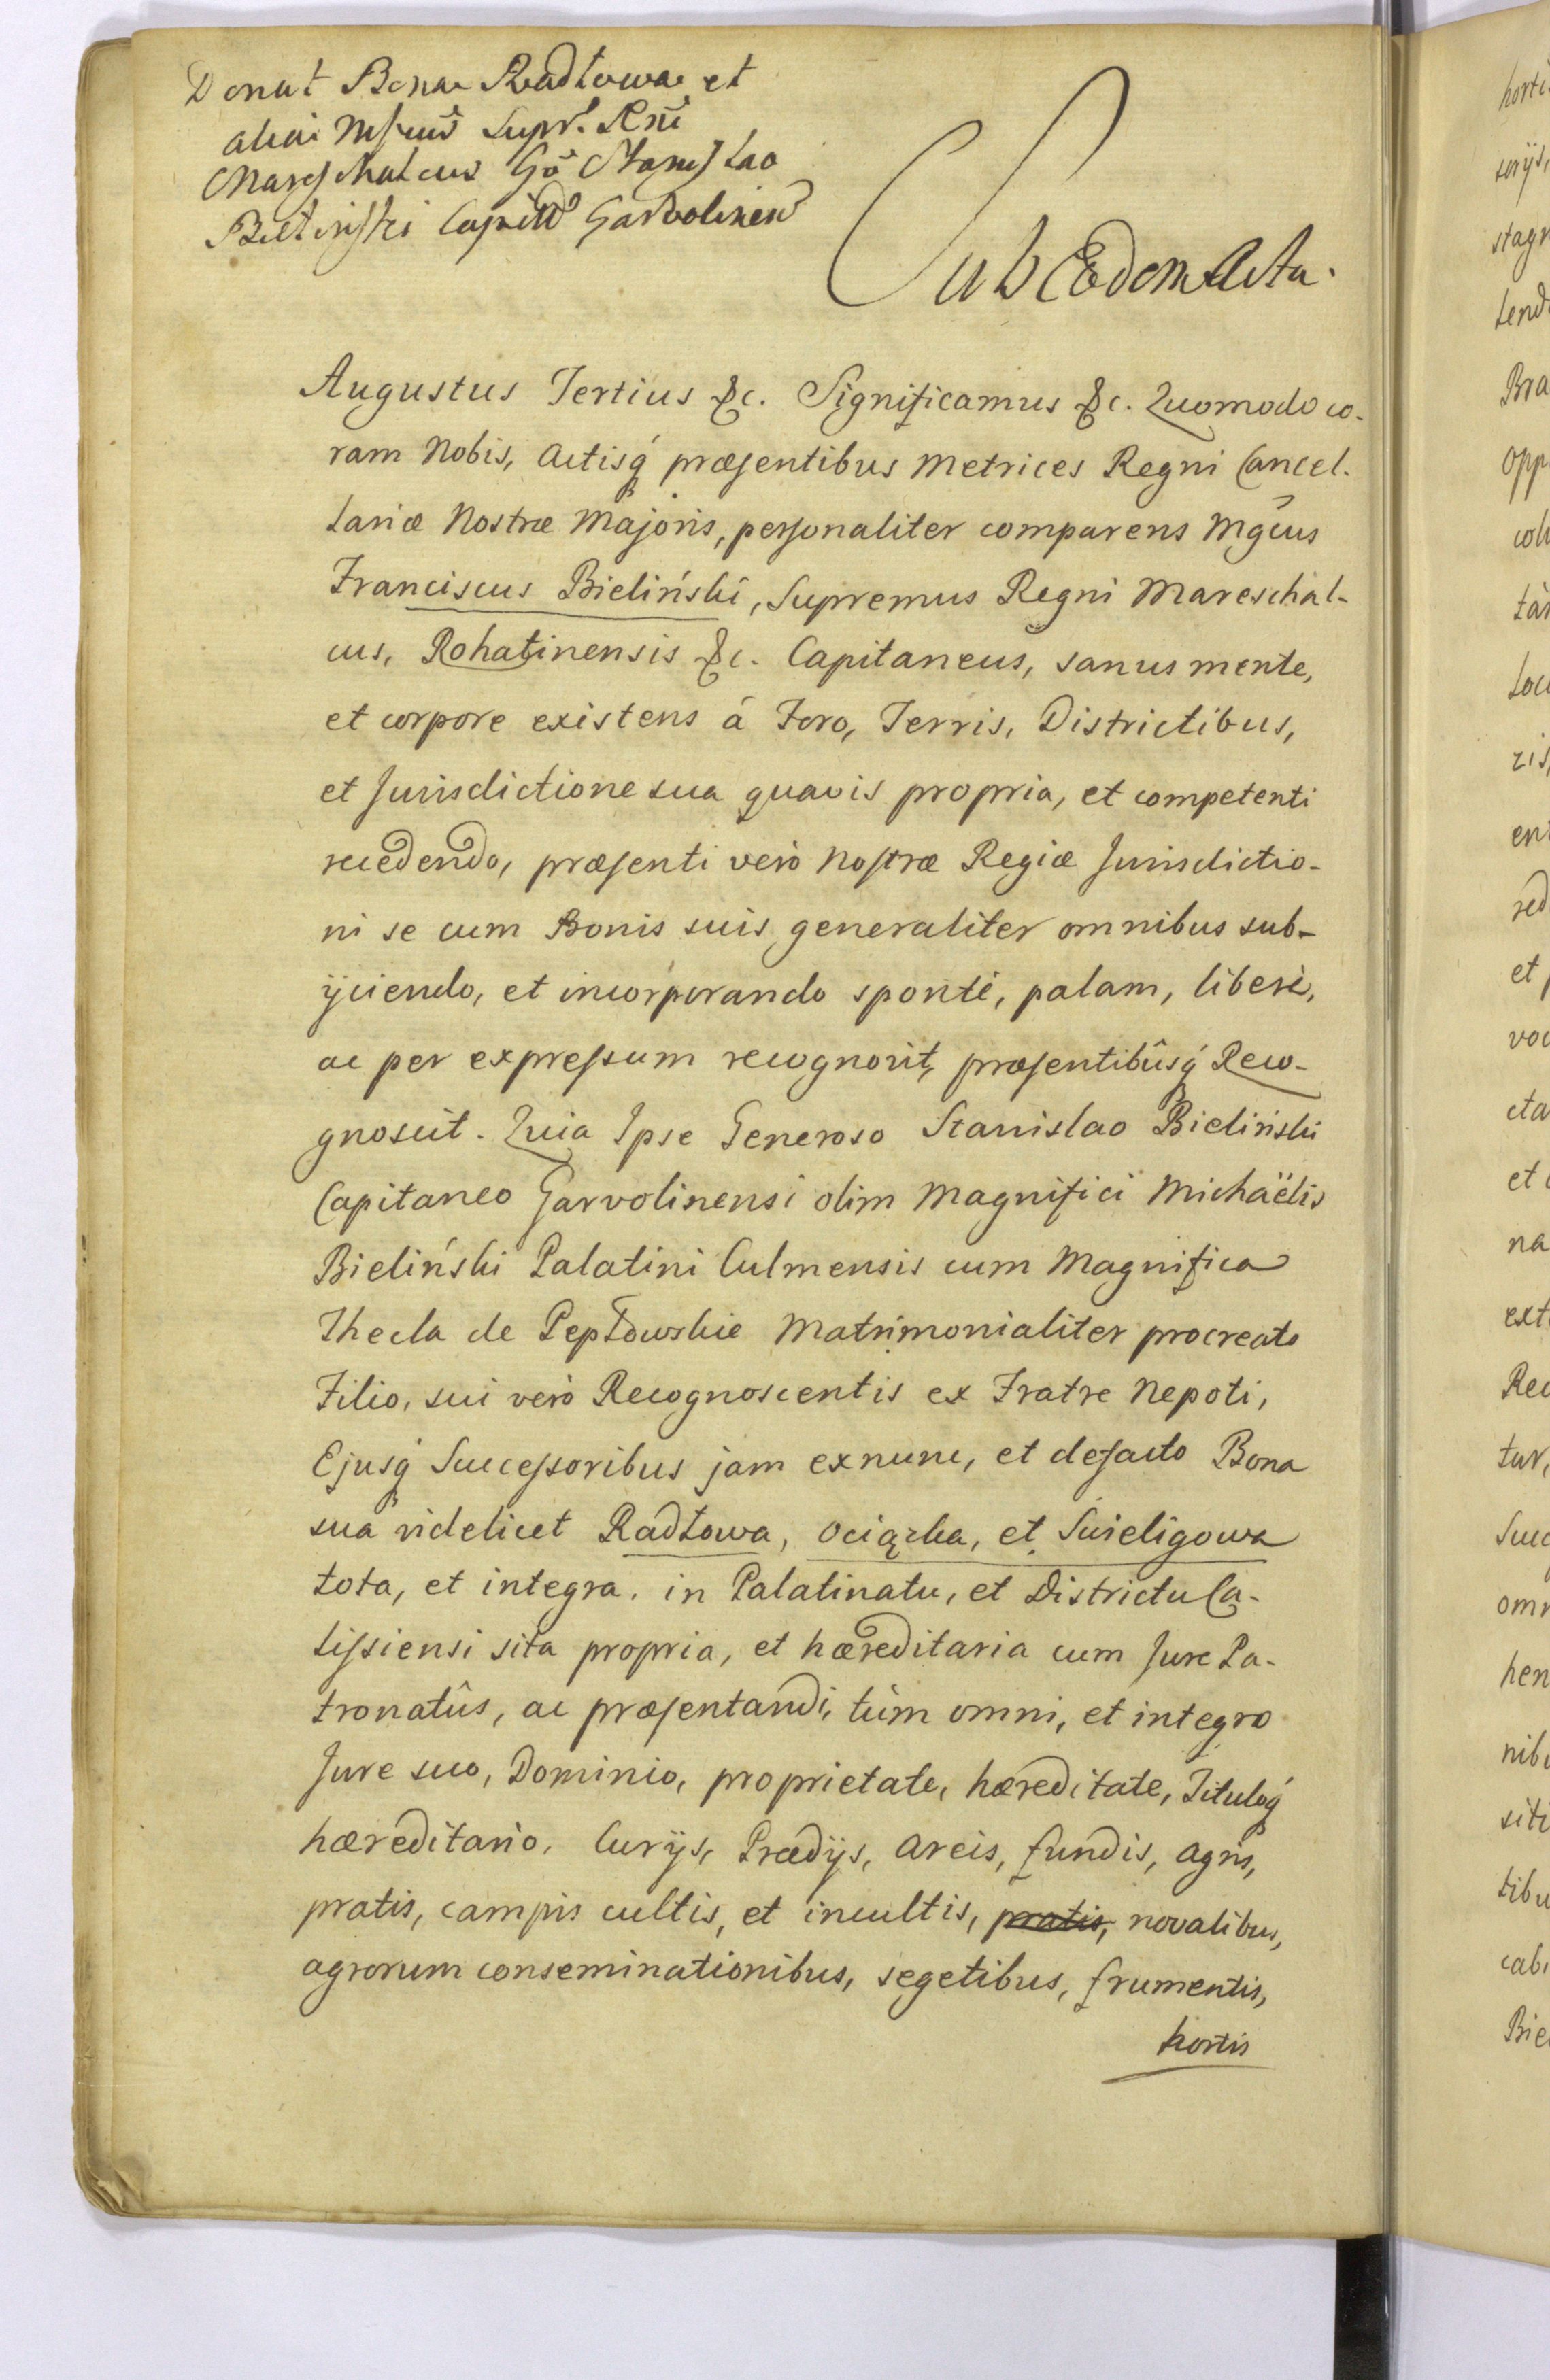 Donat Bona Radłowa et
alia Mfcus Supr. Rni
Mareschalcus Go Stanislao
Bielinski Capneo Garvolinen
Sub Eodem Acta.
Augustus Tertius &c. Significamus &c. Quomodo co-
ram Nobis, Actisq́ præsentibus Metrices Regni Cancel-
lariæ Nostræ Majoris, personaliter comparens Mgcus
Franciscus Bieliński, Supremus Regni Mareschal-
cus, Rohatinensis &c. Capitaneus, sanus mente,
et corpore existens á Foro, Terris, Districtibus,
et Jurisdictione sua quavis propria, et competenti
recedendo, præsenti verò Nostræ Regiæ Jurisdictio-
ni se cum Bonis suis generaliter omnibus sub-
ijciendo, et incorporando spontè, palam, liberè,
ac per expressum recognovit, præsentibûsq́ Reco-
gnoscit. Quia Ipse Generoso Stanislao Bieliński
Capitaneo Garvolinensi olim Magnifici Michaëlis
Bieliński Palatini Culmensis cum Magnifica
Thecla de Pepłowskie Matrimonialiter procreato
Filio, sui verò Recognoscentis ex Fratre Nepoti,
Ejusq́ Successoribus jam exnunc, et defacto Bona
sua videlicet Radłowa, Ociązka, et Swieligowa
tota, et integra. in Palatinatu, et Districtu Ca-
lissiensi sita propria, et hæreditaria cum Jure Pa-
tronatûs, ac præsentandi, tùm omni, et integro
Jure suo, Dominio, proprietate, hæreditate, Tituloq́
hæreditario. Curijs, Prædijs, Areis, fundis, agris,
pratis, campis cultis, et incultis, pratis, novalibus,
agrorum conseminationibus, segetibus, frumentis,
hortis